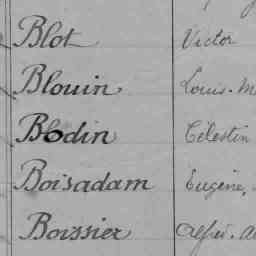 Blot Victor
Blouin Louis-M
Bodin Célestin
Boisadam Eugène,
Boissier Alfred-Au